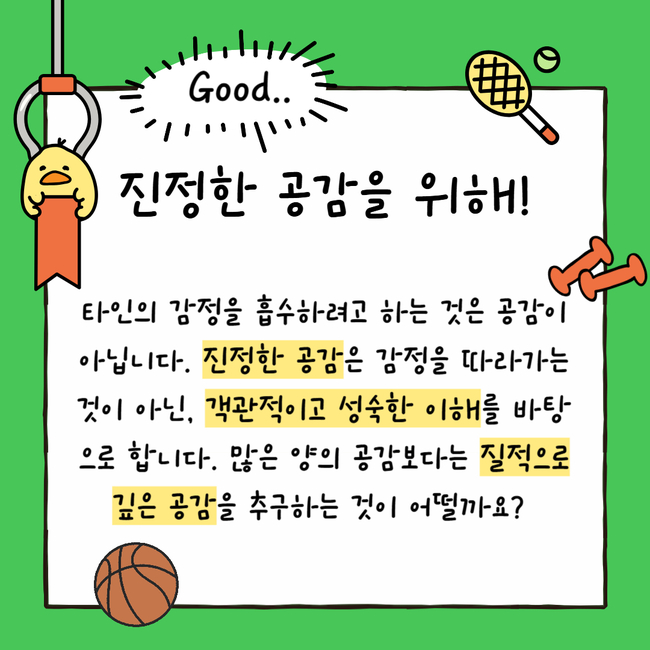 Good..
진정한 공감을 위해!
타인의 감정을 흡수하려고 하는 것은 공감이
아닙니다. 진정한 공감은 감정을 따라가는
것이 아닌, 객관적이고 성숙한 이해를 바탕
으로 합니다. 많은 양의 공감보다는 질적으로
깊은 공감을 추구하는 것이 어떨까요?